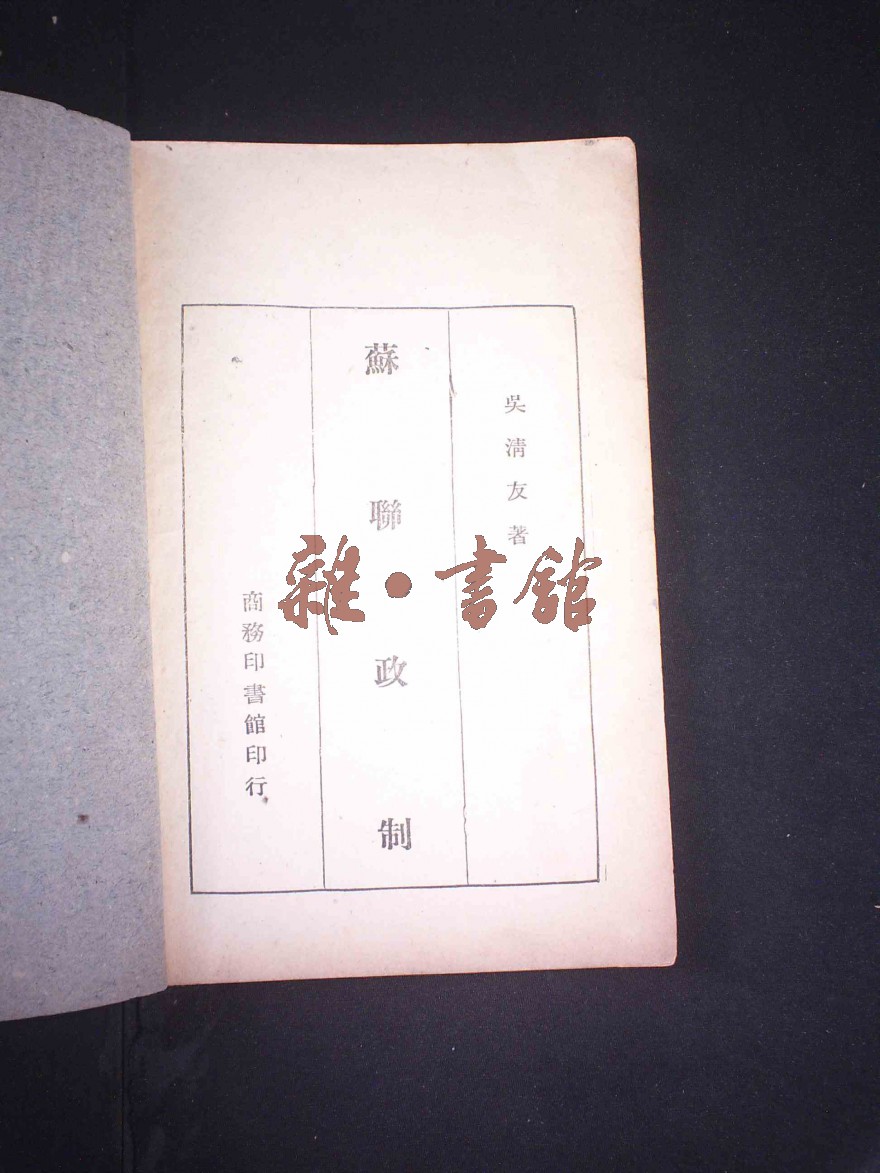 吳清友著
蘇聯政制
商務印書館印行
雜·書館